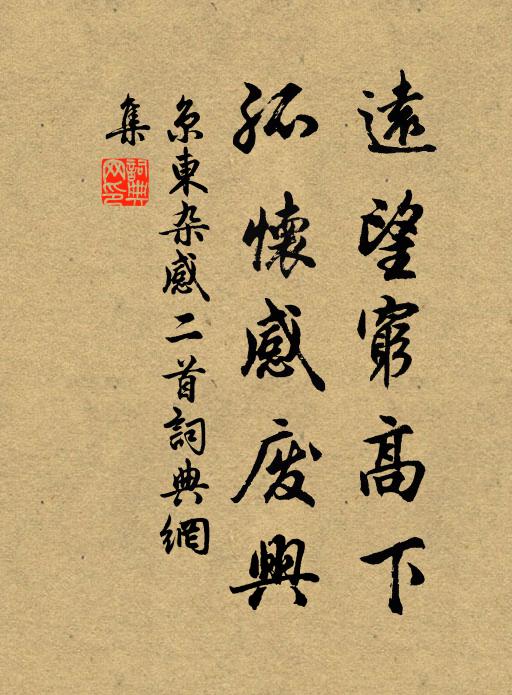 遠望窮高下
孤懷感废興
京東杂感二首詞典網
集
詞典網印